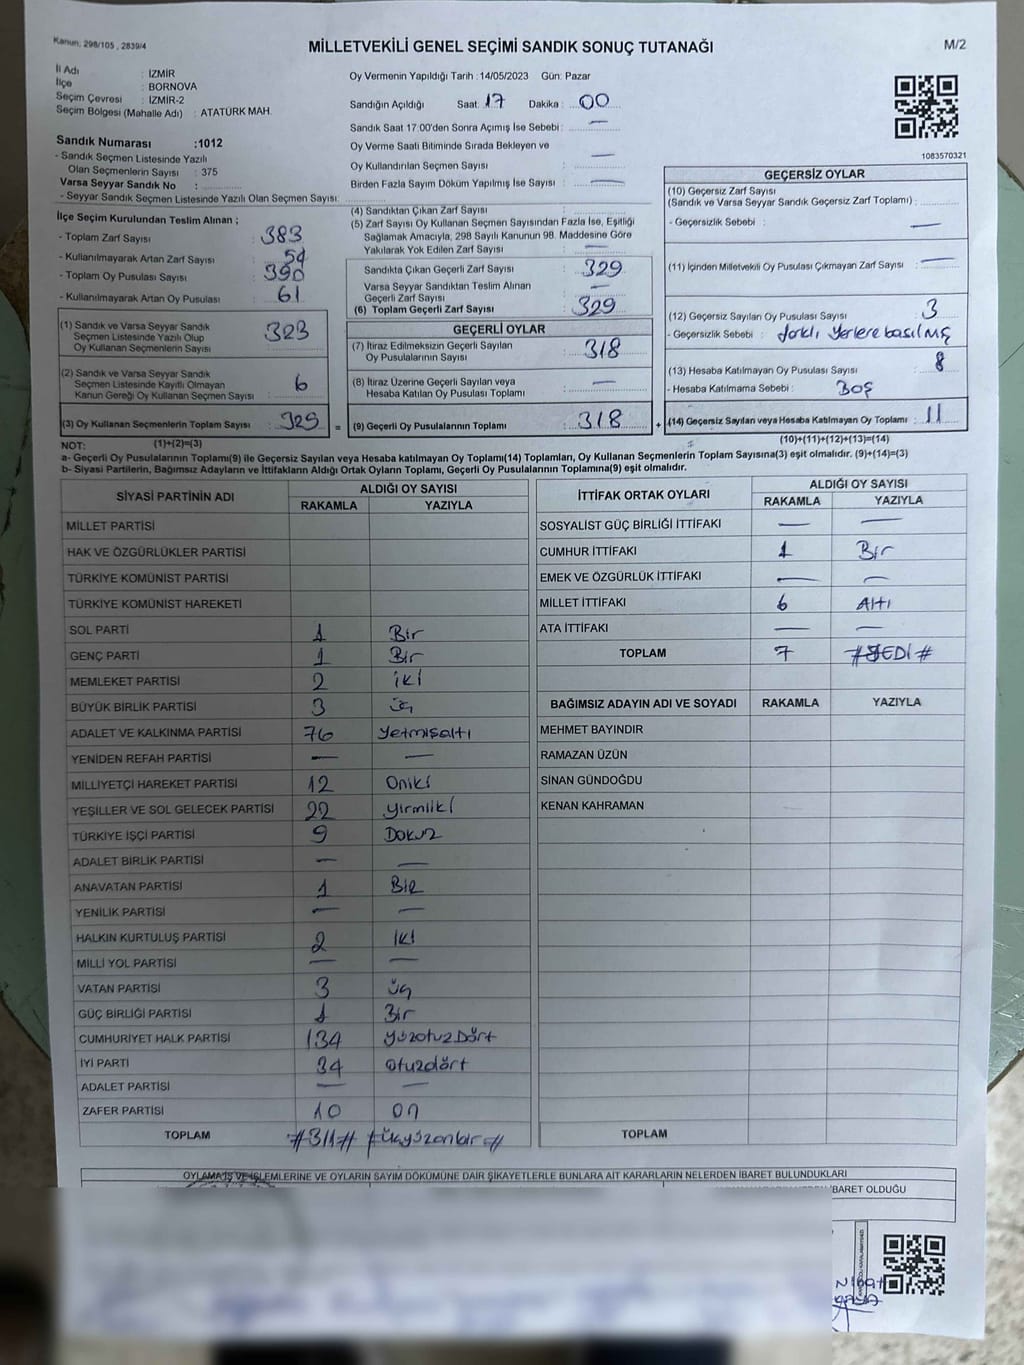 Kanun; 298/105 , 2839/4
MİLLETVEKİLİ GENEL SEÇİMİ SANDIK SONUÇ TUTANAĞI
M/2
İl Adı : İZMİR
İlçe : BORNOVA
Seçim Çevresi : İZMİR-2
Seçim Bölgesi (Mahalle Adı) : ATATÜRK MAH.
Oy Vermenin Yapıldığı Tarih :14/05/2023 Gün: Pazar
Sandığın Açıldığı Saat: 17 Dakika : 00
Sandık Saat 17:00'den Sonra Açımış İse Sebebi : —
Oy Verme Saati Bitiminde Sırada Bekleyen ve
Oy Kullandırılan Seçmen Sayısı : —
Birden Fazla Sayım Döküm Yapılmış İse Sayısı : —
1083570321
Sandık Numarası :1012
- Sandık Seçmen Listesinde Yazılı
Olan Seçmenlerin Sayısı : 375
Varsa Seyyar Sandık No :
- Seyyar Sandık Seçmen Listesinde Yazılı Olan Seçmen Sayısı:
İlçe Seçim Kurulundan Teslim Alınan ;
- Toplam Zarf Sayısı : 383
- Kullanılmayarak Artan Zarf Sayısı : 54
- Toplam Oy Pusulası Sayısı : 390
- Kullanılmayarak Artan Oy Pusulası : 61
(1) Sandık ve Varsa Seyyar Sandık
Seçmen Listesinde Yazılı Olup
Oy Kullanan Seçmenlerin Sayısı : 323
(2) Sandık ve Varsa Seyyar Sandık
Seçmen Listesinde Kayıtlı Olmayan
Kanun Gereği Oy Kullanan Seçmen Sayısı : 6
(3) Oy Kullanan Seçmenlerin Toplam Sayısı : 329 =
(4) Sandıktan Çıkan Zarf Sayısı :
(5) Zarf Sayısı Oy Kullanan Seçmen Sayısından Fazla İse, Eşitliği
Sağlamak Amacıyla, 298 Sayılı Kanunun 98. Maddesine Göre
Yakılarak Yok Edilen Zarf Sayısı : —
Sandıkta Çıkan Geçerli Zarf Sayısı : 329
Varsa Seyyar Sandıktan Teslim Alınan
Geçerli Zarf Sayısı : —
(6) Toplam Geçerli Zarf Sayısı : 329
GEÇERLİ OYLAR
(7) İtiraz Edilmeksizin Geçerli Sayılan
Oy Pusulalarının Sayısı : 318
(8) İtiraz Üzerine Geçerli Sayılan veya
Hesaba Katılan Oy Pusulası Toplamı : —
(9) Geçerli Oy Pusulalarının Toplamı : 318 +
GEÇERSİZ OYLAR
(10) Geçersiz Zarf Sayısı
(Sandık ve Varsa Seyyar Sandık Geçersiz Zarf Toplamı) :
- Geçersizlik Sebebi : —
(11) İçinden Milletvekili Oy Pusulası Çıkmayan Zarf Sayısı : —
(12) Geçersiz Sayılan Oy Pusulası Sayısı : 3
- Geçersizlik Sebebi : farklı yerlere basılmış
(13) Hesaba Katılmayan Oy Pusulası Sayısı : 8
- Hesaba Katılmama Sebebi : BOŞ
(14) Geçersiz Sayılan veya Hesaba Katılmayan Oy Toplamı : 11
NOT: (1)+(2)=(3) (10)+(11)+(12)+(13)=(14)
a- Geçerli Oy Pusulalarının Toplamı(9) ile Geçersiz Sayılan veya Hesaba Katılmayan Oy Toplamı(14) Toplamları, Oy Kullanan Seçmenlerin Toplam Sayısına(3) eşit olmalıdır. (9)+(14)=(3)
b- Siyasi Partilerin, Bağımsız Adayların ve İttifakların Aldığı Ortak Oyların Toplamı, Geçerli Oy Pusulalarının Toplamına(9) eşit olmalıdır.
SİYASİ PARTİNİN ADI
ALDIĞI OY SAYISI
RAKAMLA YAZIYLA
MİLLET PARTİSİ
HAK VE ÖZGÜRLÜKLER PARTİSİ
TÜRKİYE KOMÜNİST PARTİSİ
TÜRKİYE KOMÜNİST HAREKETİ
SOL PARTİ 1 Bir
GENÇ PARTİ 1 Bir
MEMLEKET PARTİSİ 2 iki
BÜYÜK BİRLİK PARTİSİ 3 üç
ADALET VE KALKINMA PARTİSİ 76 yetmişaltı
YENİDEN REFAH PARTİSİ — —
MİLLİYETÇİ HAREKET PARTİSİ 12 Oniki
YEŞİLLER VE SOL GELECEK PARTİSİ 22 yirmiiki
TÜRKİYE İŞÇİ PARTİSİ 9 Dokuz
ADALET BİRLİK PARTİSİ — —
ANAVATAN PARTİSİ 1 BİR
YENİLİK PARTİSİ — —
HALKIN KURTULUŞ PARTİSİ 2 iki
MİLLİ YOL PARTİSİ — —
VATAN PARTİSİ 3 üç
GÜÇ BİRLİĞİ PARTİSİ 1 Bir
CUMHURİYET HALK PARTİSİ 134 yüzotuzDört
İYİ PARTİ 34 otuzdört
ADALET PARTİSİ — —
ZAFER PARTİSİ 10 on
TOPLAM #311# #üçyüzonbir#
İTTİFAK ORTAK OYLARI
ALDIĞI OY SAYISI
RAKAMLA YAZIYLA
SOSYALİST GÜÇ BİRLİĞİ İTTİFAKI — —
CUMHUR İTTİFAKI 1 Bir
EMEK VE ÖZGÜRLÜK İTTİFAKI — —
MİLLET İTTİFAKI 6 Altı
ATA İTTİFAKI — —
TOPLAM 7 #YEDİ#
BAĞIMSIZ ADAYIN ADI VE SOYADI RAKAMLA YAZIYLA
MEHMET BAYINDIR
RAMAZAN ÜZÜN
SİNAN GÜNDOĞDU
KENAN KAHRAMAN
TOPLAM
OYLAMA İŞ VE İŞLEMLERİNE VE OYLARIN SAYIM DÖKÜMÜNE DAİR ŞİKAYETLERLE BUNLARA AİT KARARLARIN NELERDEN İBARET BULUNDUKLARI
İBARET OLDUĞU